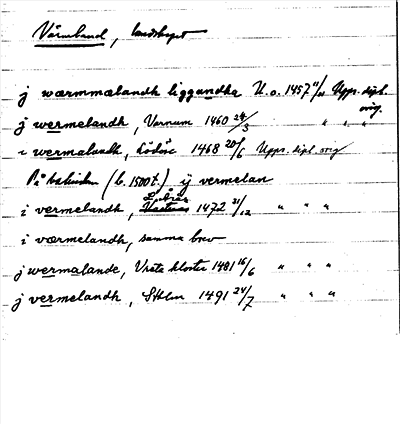 Värmland, landskapet
j wærmmælandh liggandha U.o. 1457 11/11 Upps. dipl. orig.
j wermelandh, Varnum 1460 24/3 " " "
i wermalandh, Lödöse 1468 20/6 Upps. dipl. orig
På baksidan (b. 1500t.) ij vermelan
i vermelandh, Västerås 1472 21/12 " " "
iværmelandh, samma brev
j wermalande, Vreta kloster 1481 16/6 " " "
j vermelandh, Sthlm 1491 24/7 " " "